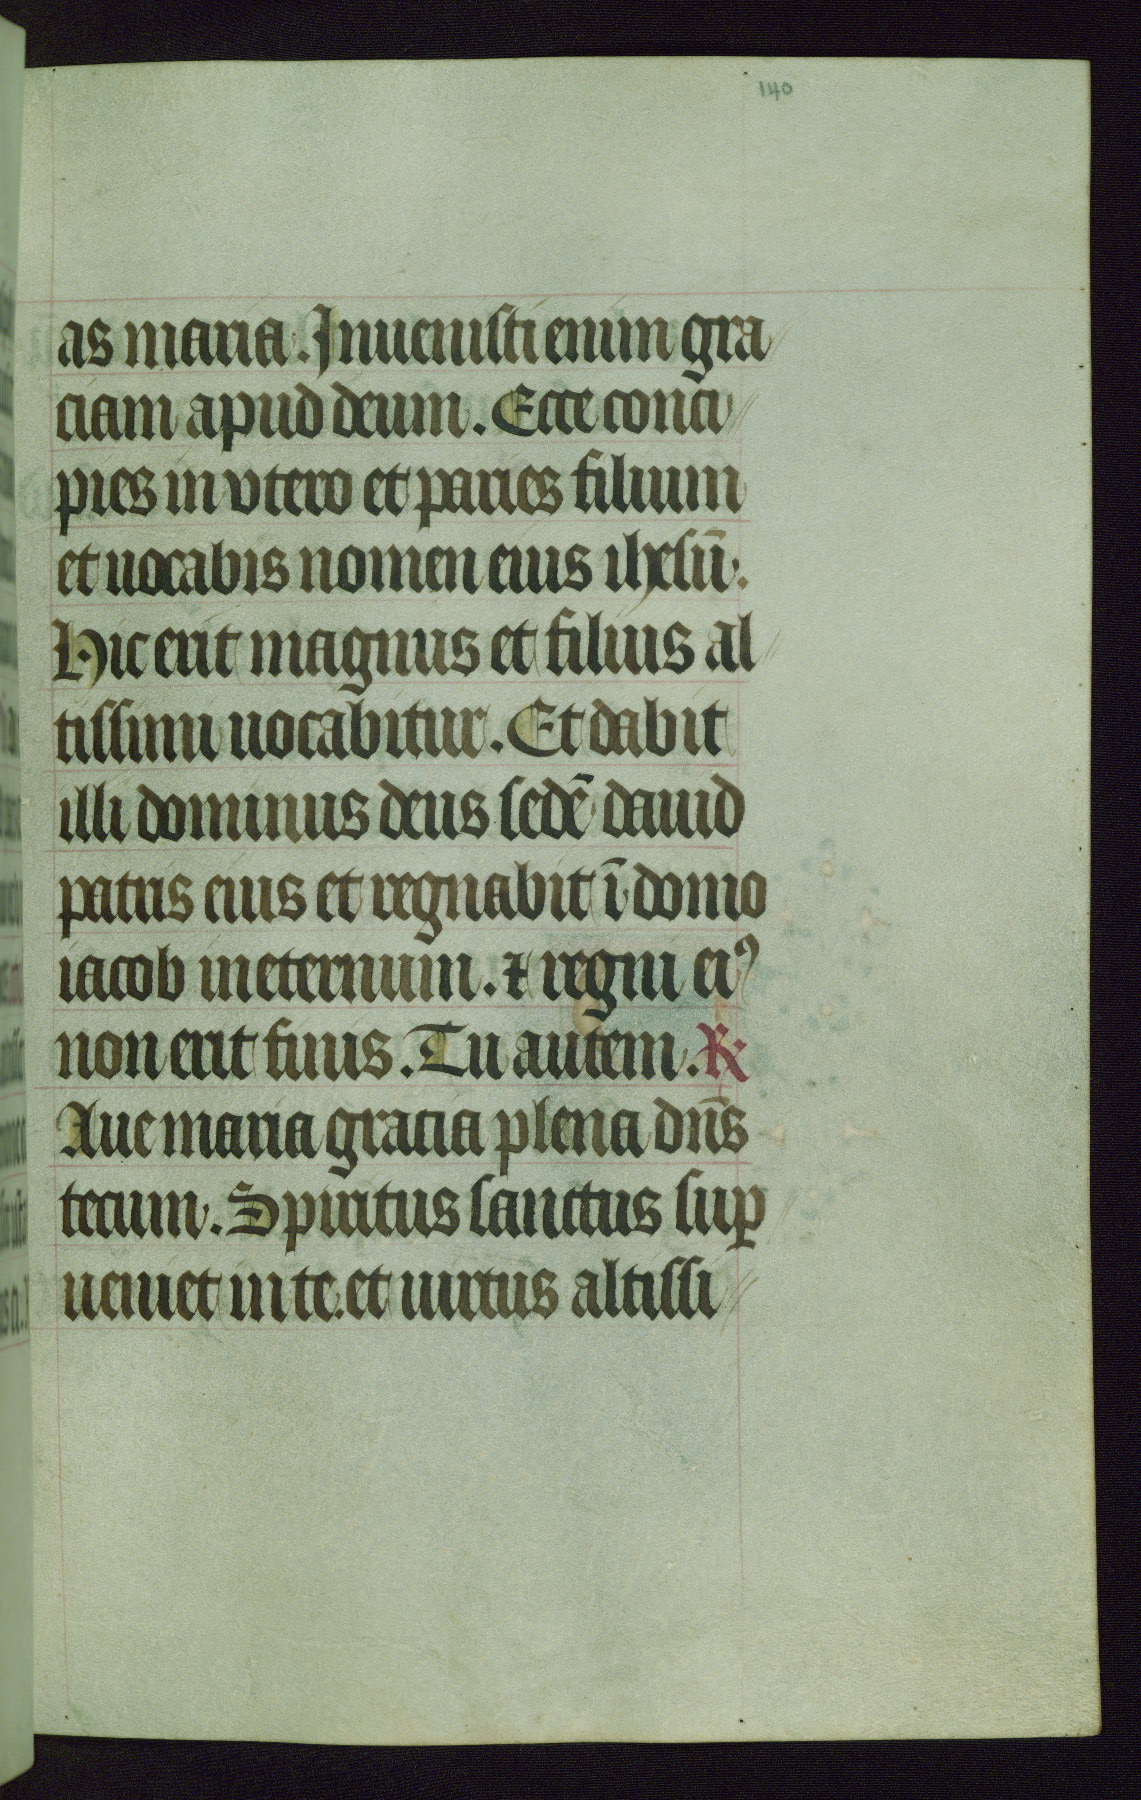 140
as maria. Inuenisti enim gra
ciam apud deum. Ecce conci
pies in vtero et paries filium
et uocabis nomen eius ihesū.
Hic erit magnus et filius al
tissimi uocabitur. Et dabit
illi dominus deus sedē dauid
patris eius et regnabit ī domo
iacob in eternum. ⁊ regni eiꝰ
non erit finis. Tu autem. ℟
Aue maria gracia plena dn̄s
tecum. Spiritus sanctus suꝑ
ueniet in te. et uirtus altissi